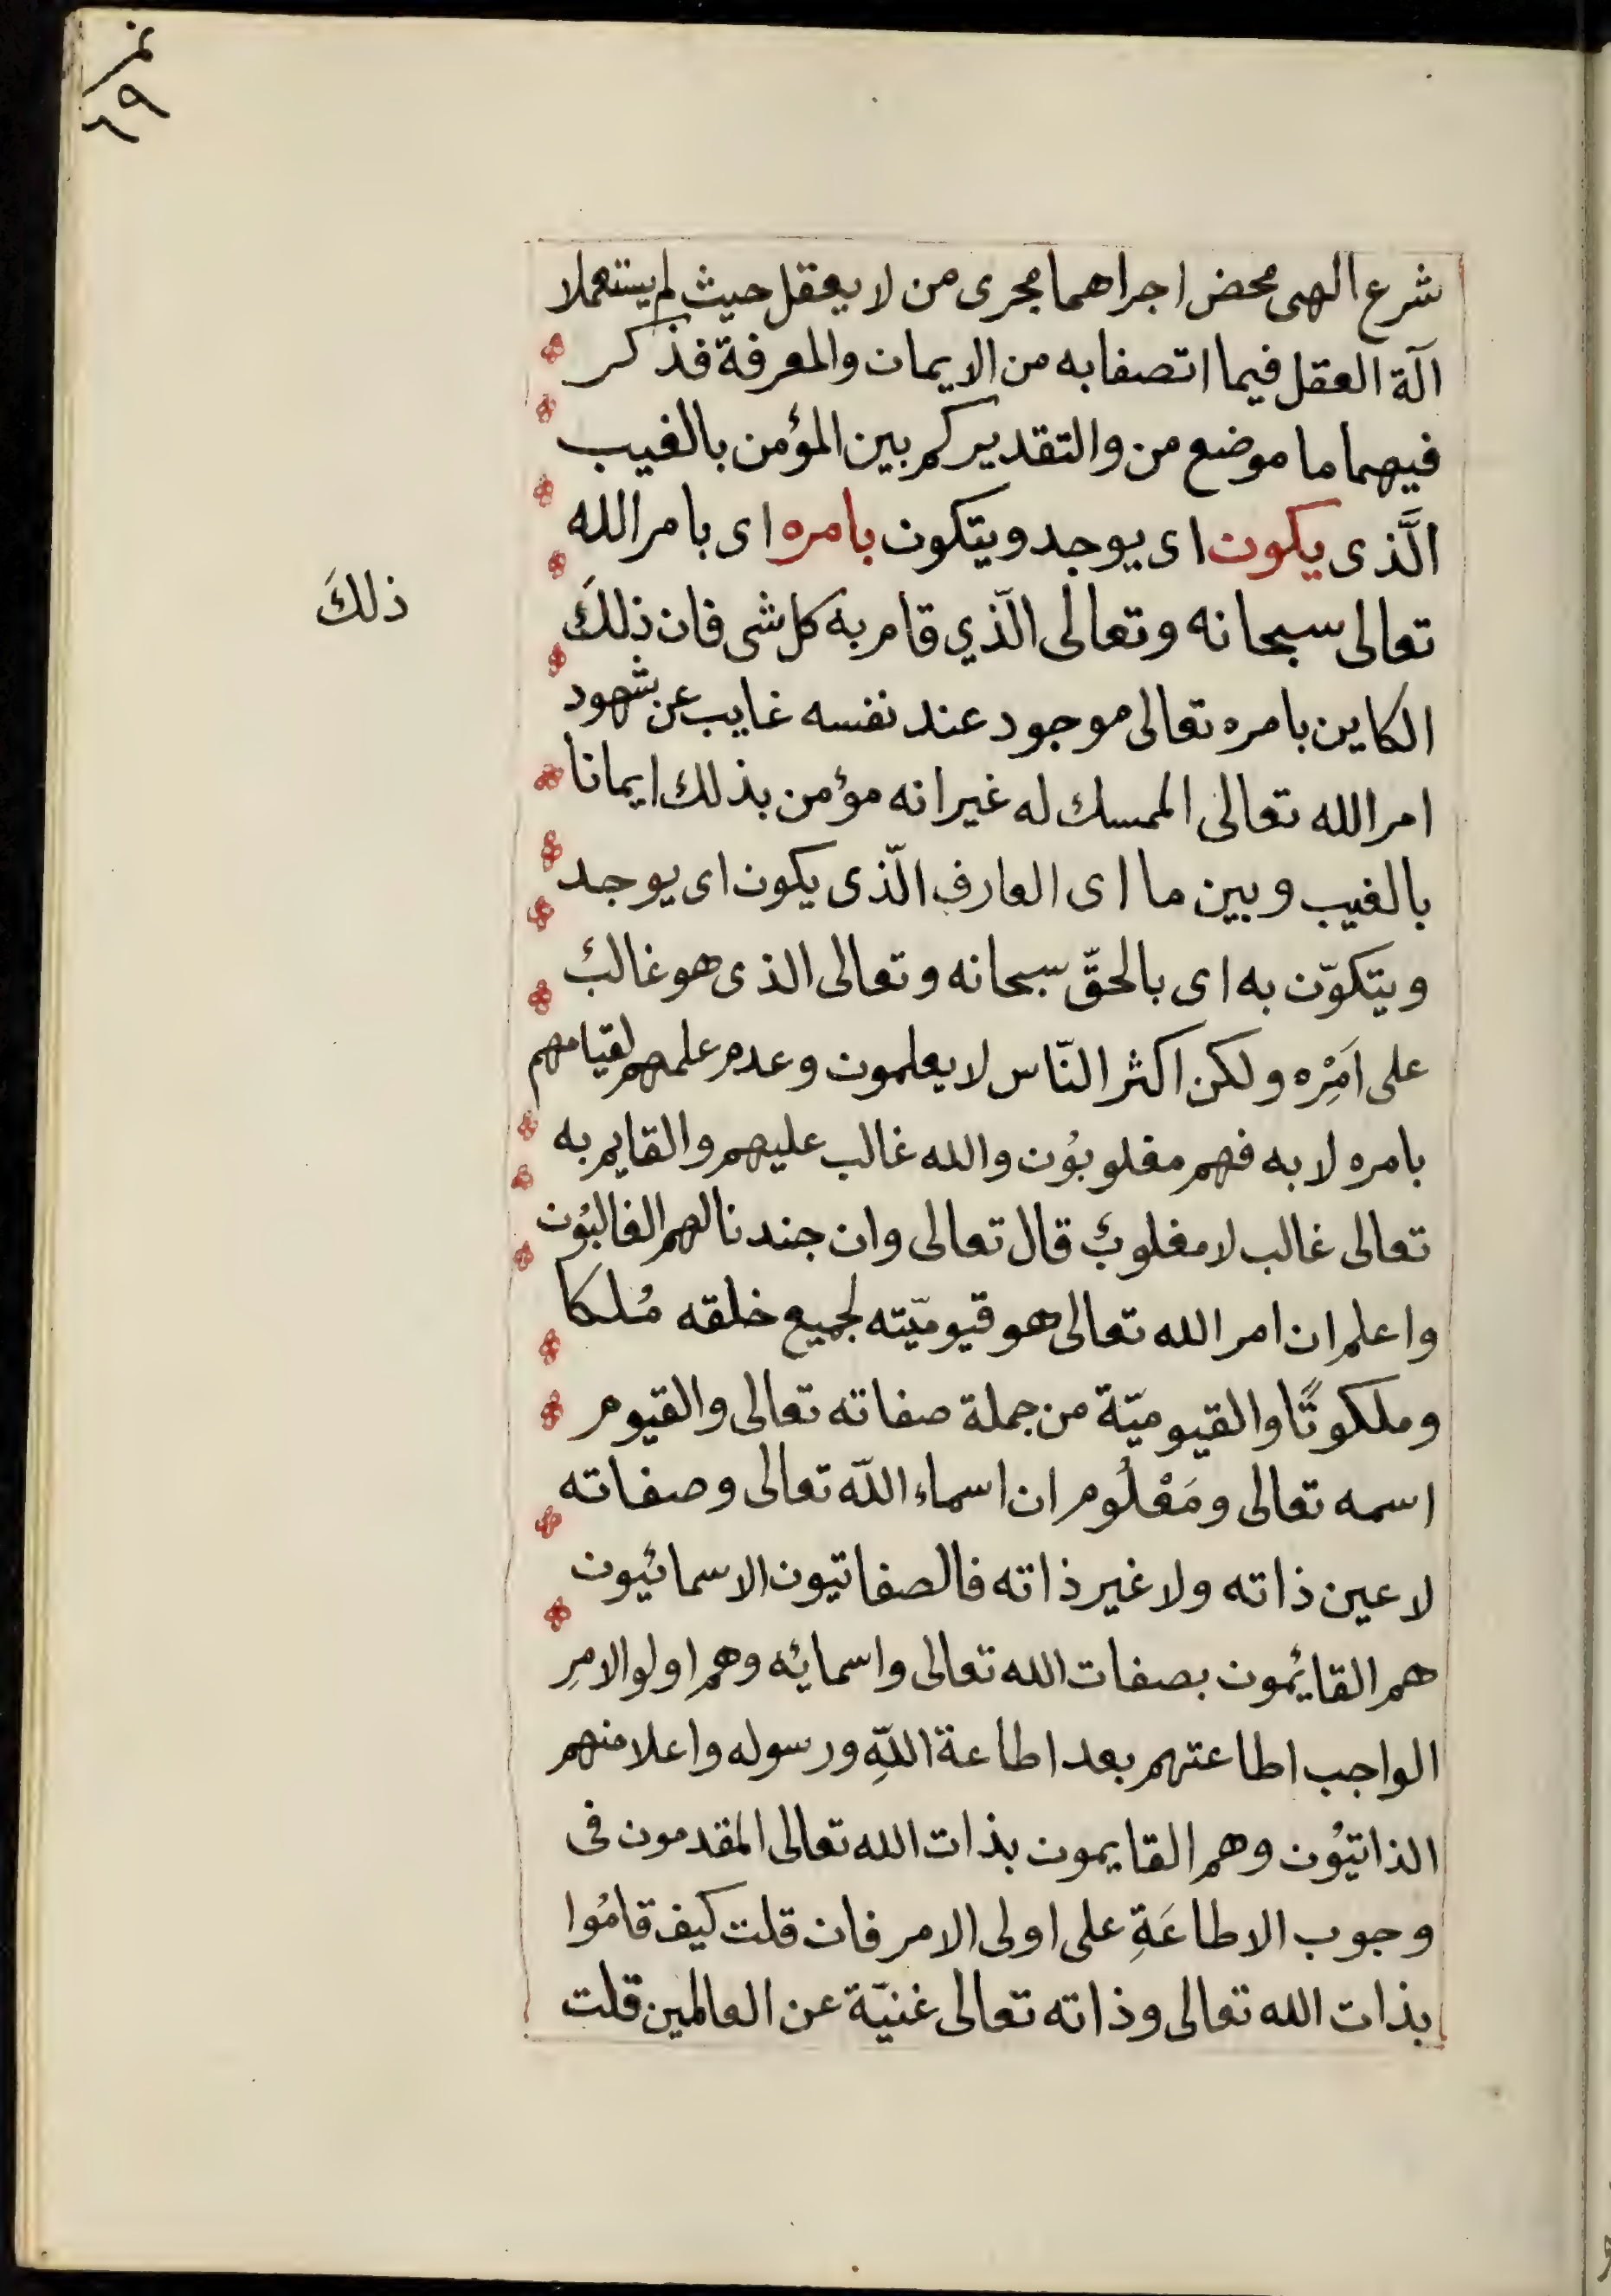 نمر
٦٩
شرع الهى محض اجراهما مجرى من لا يعقل حيث لم يستعملا
آلة العقل فيما اتصفا به من الايمان والمعرفة فذكر
فيهما ما موضع من والتقدير كم بين المؤمن بالغيب
الَّذى يكون اى يوجد ويتكون بامره اى بامر الله
تعالى سبحانه وتعالى الّذي قام به كل شى فان ذلكَ
ذلكَ
الكاين بامره تعالى موجود عند نفسه غايب عن شهود
امر الله تعالى الممسك له غير انه مؤمن بذلك ايمانا
بالغيب وبين ما اى العارف الّذى يكون اى يوجد
ويتكوّن به اى بالحقّ سبحانه وتعالى الذى هو غالبٌ
على اَمْرِه ولكن اكثر النّاس لا يعلمون وعدم علمهم لقيامهم
بامره لا به فهم مغلوبُون والله غالب عليهم والقايم به
تعالى غالب لا مغلوبٌ قال تعالى وان جندنا لهم الغالبُون
واعلم ان امر الله تعالى هو قيوميّته لجميع خلقه مُلكا
وملكوتًا والقيوميّة من جملة صفاته تعالى والقيوم
اسمه تعالى ومَعْلُوم ان اسماء اللّه تعالى وصفاته
لا عين ذاته ولا غير ذاته فالصفاتيون الاسمائيون
هم القائيمون بصفات الله تعالى واسمائه وهم اولوا الامرِ
الواجب اطاعتهم بعد اطاعة اللّهِ ورسوله واعلا منهم
الذاتيُون وهم القايمون بذات الله تعالى المقدمون فى
وجوب الاطاعَةِ على اولى الامر فان قلت كيف قامُوا
بذات الله تعالى وذاته تعالى غنيّة عن العالمين قلت